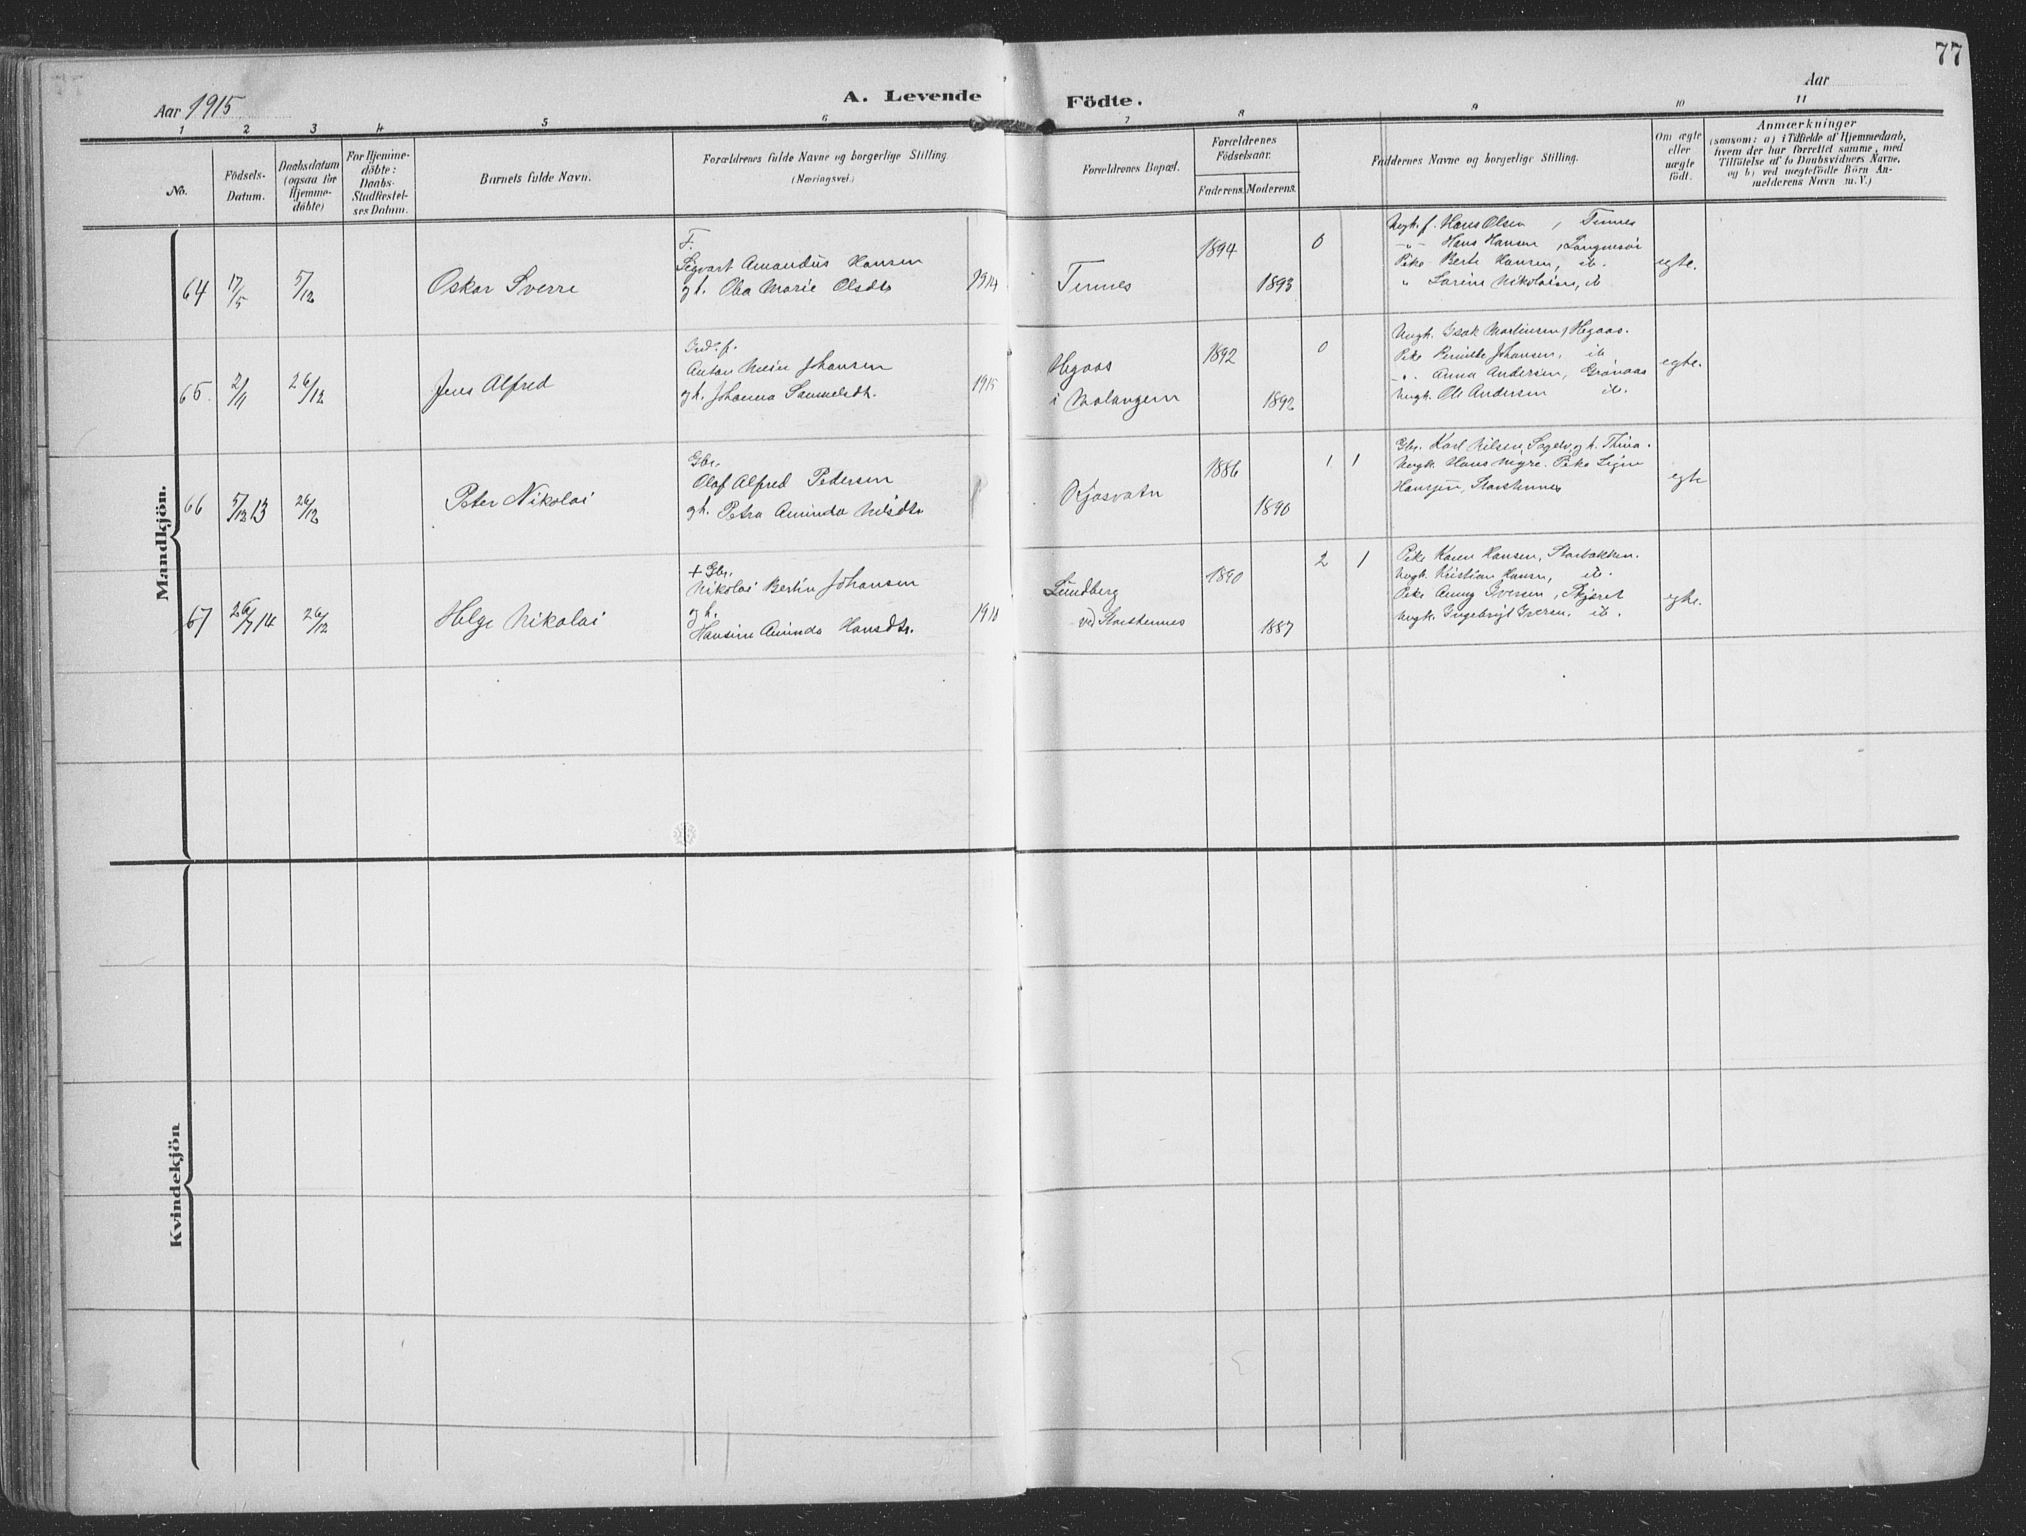 77
Aar 1915
A. Levende
Födte.
Aar
1 2 3 4 5 6 7 8 9 10 11
No.
Födsels-
Datum.
Daabsdatum
(ogsaa for
Hjemme-
döbte)
For Hjemme-
döbte:
Daabs-
Stadfæstel-
ses Datum.
Barnets fulde Navn.
Forældrenes fulde Navne og borgerlige Stilling.
(Næringsvei.)
Forældrenes Bopæl.
Forældrenes
Födselsaar.
Faderens. Moderens.
Faddernes Navne og borgerlige Stilling.
Om ægte
eller
uægte
födt.
Anmærkninger
(saasom: a) i Tilfælde af Hjemmedaab,
hvem der har forrettet samme, med
Tilföielse af to Daabsvidners Navne,
og b) ved uægtefödte Börn An-
melderens Navn m. V.)
Mandkjön.
64 17/5 5/12 Oskar Sverre
F.
Sigvart Amandus Hansen
gh. Oba Marie Olsdtr 1914
Tennes 1894 1893 0
Ungk. f. Hans Olsen, Tennes
-"- Hans Hansen,
Pike Berte Hansen, ib.
" Larine Nikolaisen, ib
egte.
65. 2/11 26/12 Jens Alfred
Ind. f.
Anton Meier Johansen
gh. Johanna Samuelsdtr. 1915
Hegaas
i Malangen 1892 1892 0
Ungk. Isak Martinsen, Hegaas.
Pike Pernille Johansen, ib.
-"- Anna Andersen, Grønaas
Ungk. Ole Andersen ib.
egte.
66 5/12 13 26/12 Peter Nikolai
Gbr.
Olaf Alfred Pedersen
gh. Petra Aminda Nilsdtr
Kjosvatn 1886 1890 1 1
Gbr. Karl Nilsen, Sagelv, gh. Thina.
Ungk. Hans Myre. Pike Signe
Hansen, Storstennes
egte
67 26/7 14 26/12 Helge Nikolai
+ Gbr.
Nikolai Bertin Johansen
gh.
Hansine Aminda Hansdtr. 1910
Lundberg
ved Storstennes 1890 1887 2 1
Pike Karen Hansen, Storbakken.
Ungk. Kristian Hansen, ib.
Pike Anny Iversen, Skjæret
Ungk. Ingebrigt Iversen, ib.
egte.
Kvindekjön